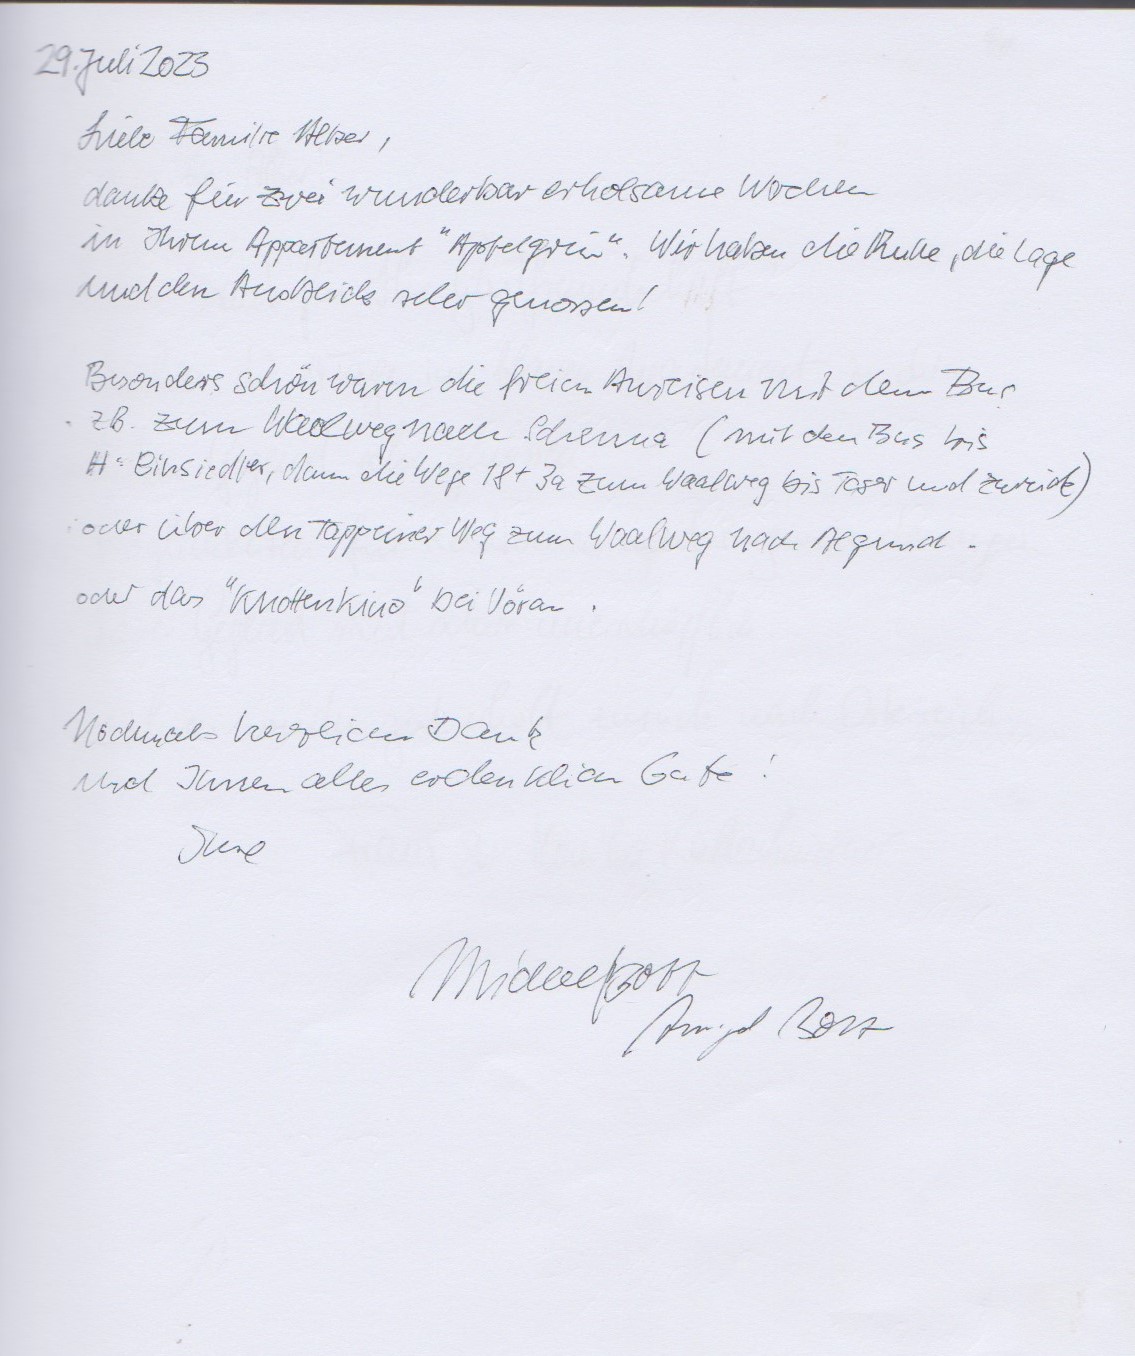 29. Juli 2023
Liebe Familie Alber,
danke für zwei wunderbar erholsame Wochen
in Ihrem Appartement "Apfelgrün". Wir haben die Ruhe, die Lage
und den Ausblick sehr genossen!
Besonders schön waren die freien Anreisen mit dem Bus
z.B. zum Waalweg nach Schenna (mit dem Bus bis
H: Einsiedler, dann die Wege 18 + 3a zum Waalweg bis Taser und zurück)
oder über den Tappeiner Weg zum Waalweg nach Algund.
oder das "Knottenkino" bei Vöran.
Nochmals herzlichen Dank
und Ihnen alles erdenklich Gute!
Ihre
Michael